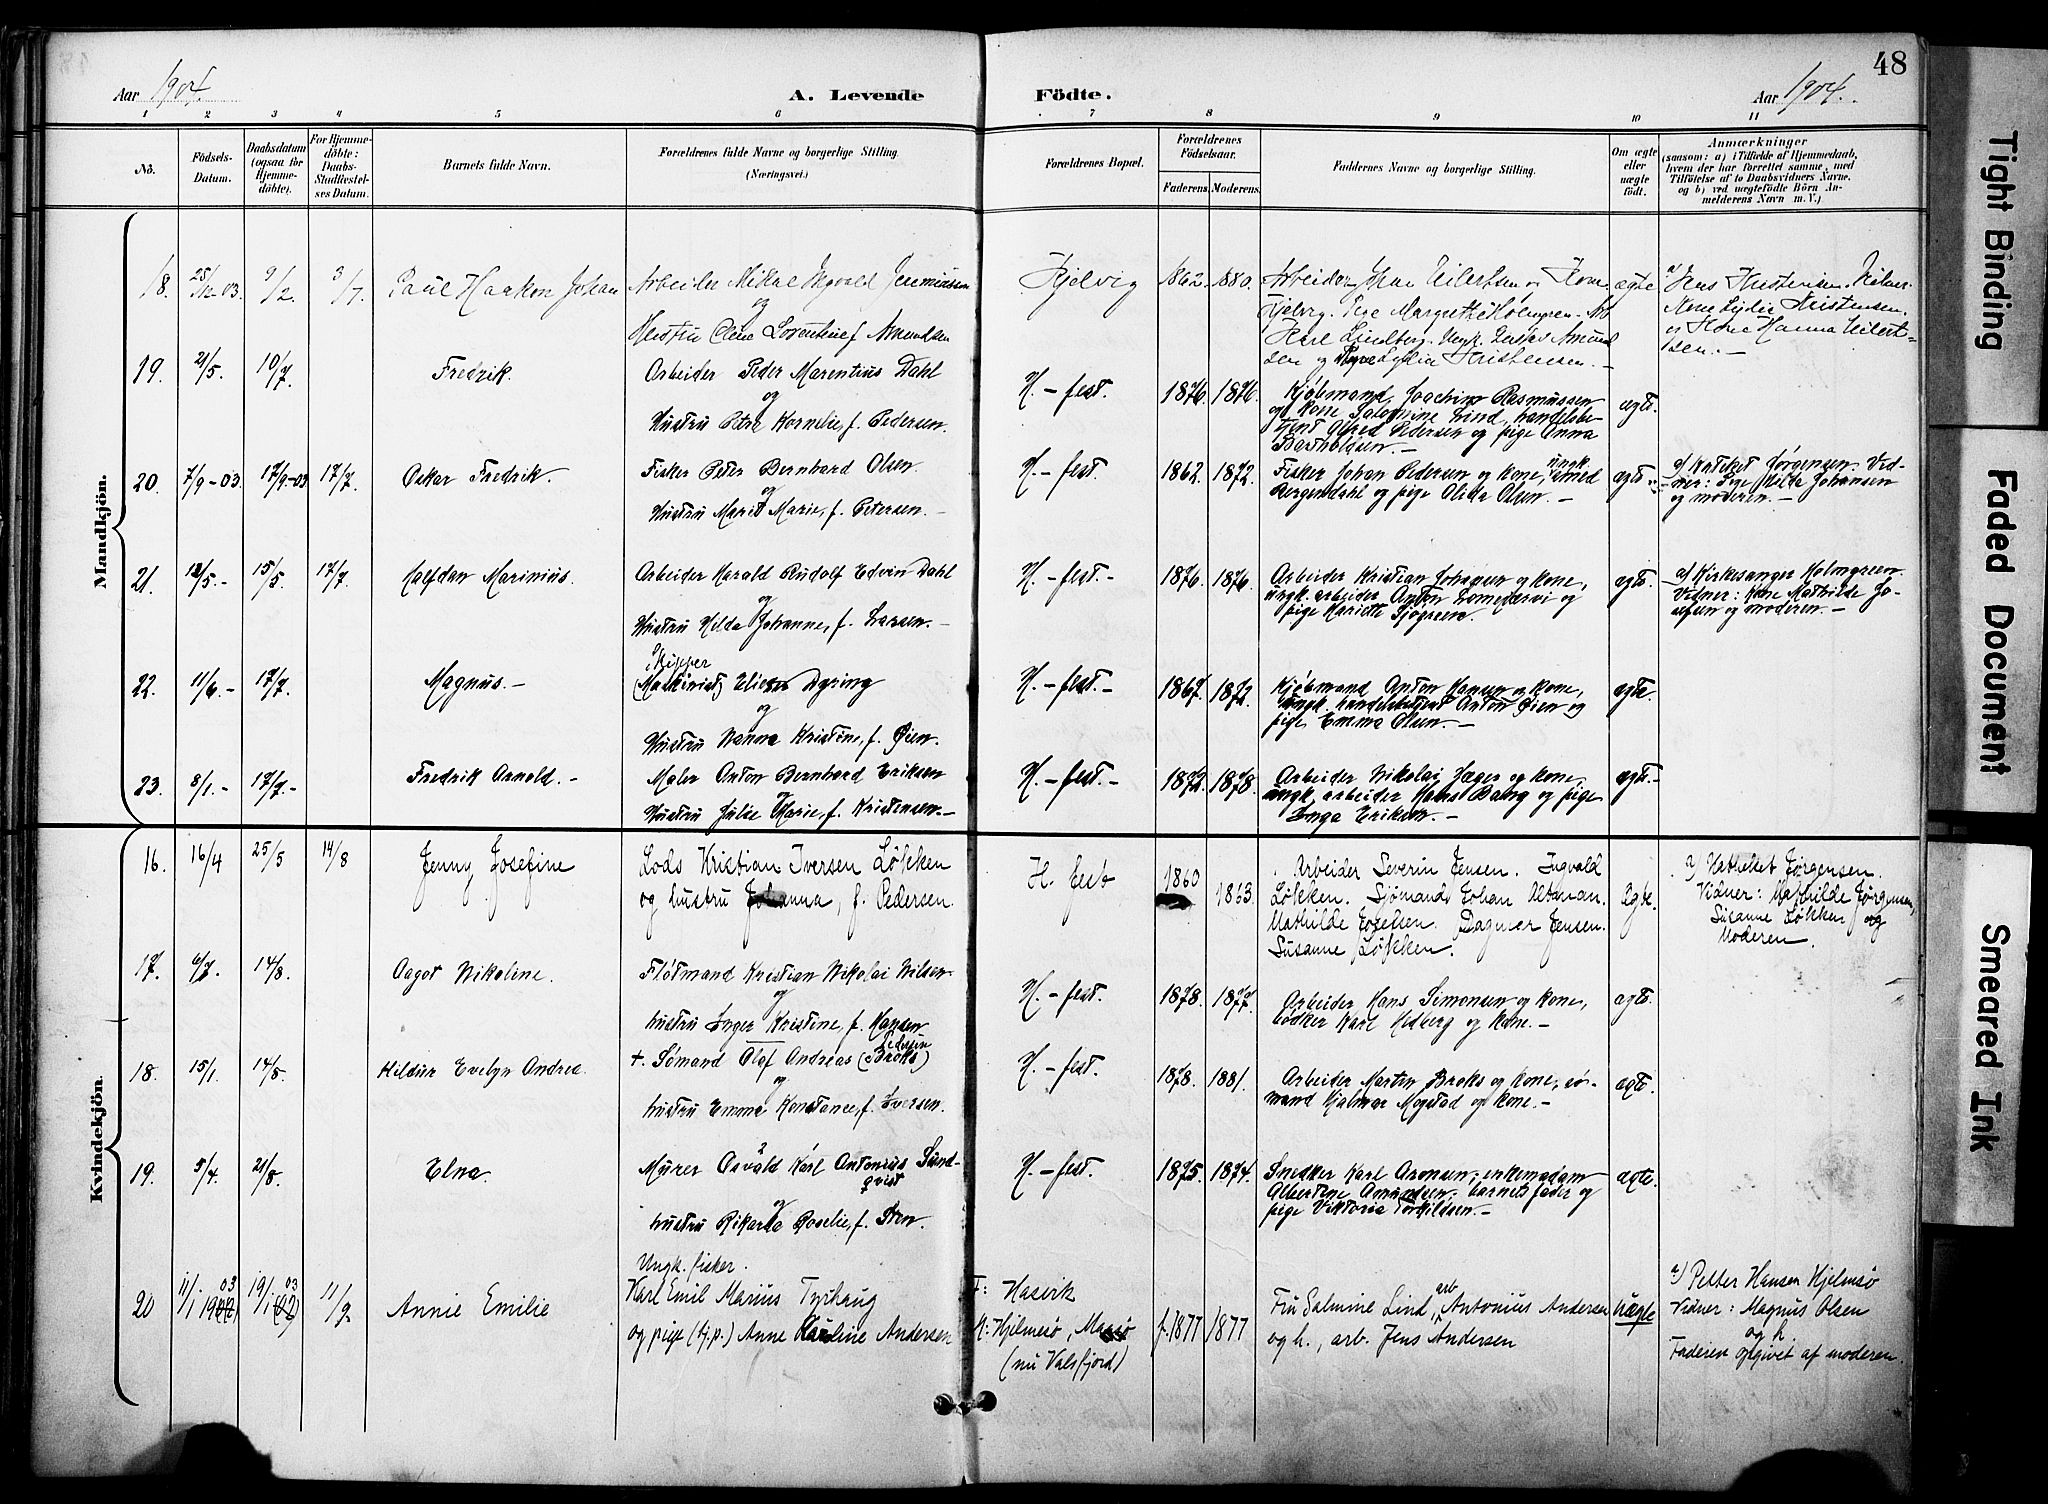 48
Aar 1904.
A. Levende Födte.
Aar 1904.
1 2 3 4 5 6 7 8 9 10 11
No.
Födsels-Datum.
Daabsdatum (ogsaa for Hjemme-döbte).
For Hjemme-döbte: Daabs-Stadfæstel-ses Datum.
Barnets fulde Navn.
Forældrenes fulde Navne og borgerlige Stilling. (Næringsvei.)
Forældrenes Bopæl.
Forældrenes Födselsaar.
Faderens. Moderens.
Faddernes Navne og borgerlige Stilling.
Om ægte eller uægte födt.
Anmærkninger
(saasom: a) i Tilfælde af Hjemmedaab,
hvem der har forrettet samme, med
Tilföielse af to Daabsvidners Navne,
og b) ved uægtefödte Börn An-
melderens Navn m. V.)
Mandkjön.
18. 25/12-03. 9/2. 3/7. Paul Haakon Johan
Arbeider Mikal Ingvald Jeremiassen
og
Hustru Oline Lorentine f. Amundsen
Kjelvig 1862. 1880.
Arbeider Johan Eilertsen og Kone
Kjelvig. Pige Margrethe Holmgren.
Karl Lindberg. Ungk. Gustav Amund
sen og Pige Lydia Kristensen.-
ægte
a) Jens Kristensen. Vidner.
Kone Lydia Kristensen.
og Kone Hanna Eilert=
sen.-
19. 21/5. 10/7. Fredrik.
Arbeider Peder Marentius Dahl
og
Hustru Petra Kornelie, f. Pedersen.
H.-fest. 1876. 1876.
Kjöbmand Joachim Rasmussen
og kone, Salomine Lind, handelsbe-
tjent Alfred Pedersen og pige Anna
Bartholdsen.-
ægte.
20. 7/9-03. 17/9-03 17/7. Oskar Fredrik.
Fisker Peter Bernhard Olsen
og
Hustru Marit Marie, f. Petersen.-
H.-fest. 1862. 1872.
Fisker Johan Pedersen og kone, ungk.
Bergendahl og pige Olida Olsen.-
ægte
a) Kateket Jörgensen. Vid-
ner: Pige Hilda Johansen
og moderen.-
21. 12/5.- 15/5. 17/7. Halfdan Marinius.
Arbeider Harald Rudolf Edvin Dahl
og
Hustru Hilda Johanne, f. Larsen.-
H.-fest.- 1876. 1876.
Arbeider Kristian Johansen og kone,
ungk. arbeider Anton og
pige Mariette Sjögreen.
ægte.
a) Kirkesanger Holmgreen.
Vidner: Kone Mathilde Jo-
sefsen og moderen.-
22. 11/6.- 17/7. Magnus.-
Skipper
(Maskinist) Elieser Dyring
og
Hustru Nanna Kristine, f. Øien.
H.-fest.- 1867. 1872.
Kjöbmand Anton Hansen og kone,
ungk. handelsbetjent Anton Øien og
pige Emma Olsen.-
ægte.
23. 8/1.- 17/7.- Fredrik Arnold.-
Maler Anton Bernhard Eriksen
og
Hustru Julie Marie, f. Kristensen.-
H.-fest.- 1872. 1878.
Arbeider Nikolai Jæger og kone,
ungk. arbeider Hans Bang og pige
Inga Eriksen.-
ægte.-
Kvindekjön.
16. 16/4 25/5 14/8 Jenny Josefine
Lods Kristian Iversen Løkken
og hustru Johanna, f. Pedersen.
H. fest 1860 1863.
Arbeider Severin Jensen. Ingvald
Løkken. Sjömand Johan Altmann.
Mathilde Josefsen. Dagmar Jensen.
Susanne Løkken.
Ægte.
a) Kateket Jørgensen.
Vidner: Mathilde Jørgensen,
Susanne Løkken og
Moderen.
17. 6/7. 14/8. Aagot Nikoline.
Flötmand Kristian Nikolai Nilsen
og
hustru Inger Kristine, f. Hansen
H.-fest. 1878. 1877.
Arbeider Hans Simonsen og kone,
bödker Karl Hedberg og kone.-
ægte.
18. 15/1. 14/8. Hildur Evelyn Andrea.
+. Sömand Olaf Andreas Pedersen (Broks)
og
hustru Emma Konstance, f. Iversen.
H.-fest. 1878. 1881.
Arbeider Martin Broks og kone, sö-
mand Hjalmar Mogstad og kone.-
ægte.
19. 5/4. 21/8. Elna.
Murer Osvald Karl Antonius Sund-
qvist
og
hustru Rikarda Roselie, f. Sten.
H.-fest. 1875. 1874.
Snedker Karl Aronsen, enkemadam
Albertine Amundsen, barnets fader og
pige Viktoria Torkildsen.-
ægte.
20 11/1 1903 19/1 03 11/9 Annie Emilie
Ungk. fisker.
Karl Emil Marius Tyrihaug
og pige (tj.p.) Anne Karoline Andersen
F: Hasvik
M: Hjelmsø, Maasø
(nu Valsfjord)
f. 1877 1877
Fru Salmine Lind, arb. Antonius Andersen
og h., arb. Jens Andersen
uægte
a) Petter Hansen Hjelmsø
Vidner: Magnus Olsen
og h.
Faderen opgivet af moderen.
Tight Binding
Faded Document
Smeared Ink